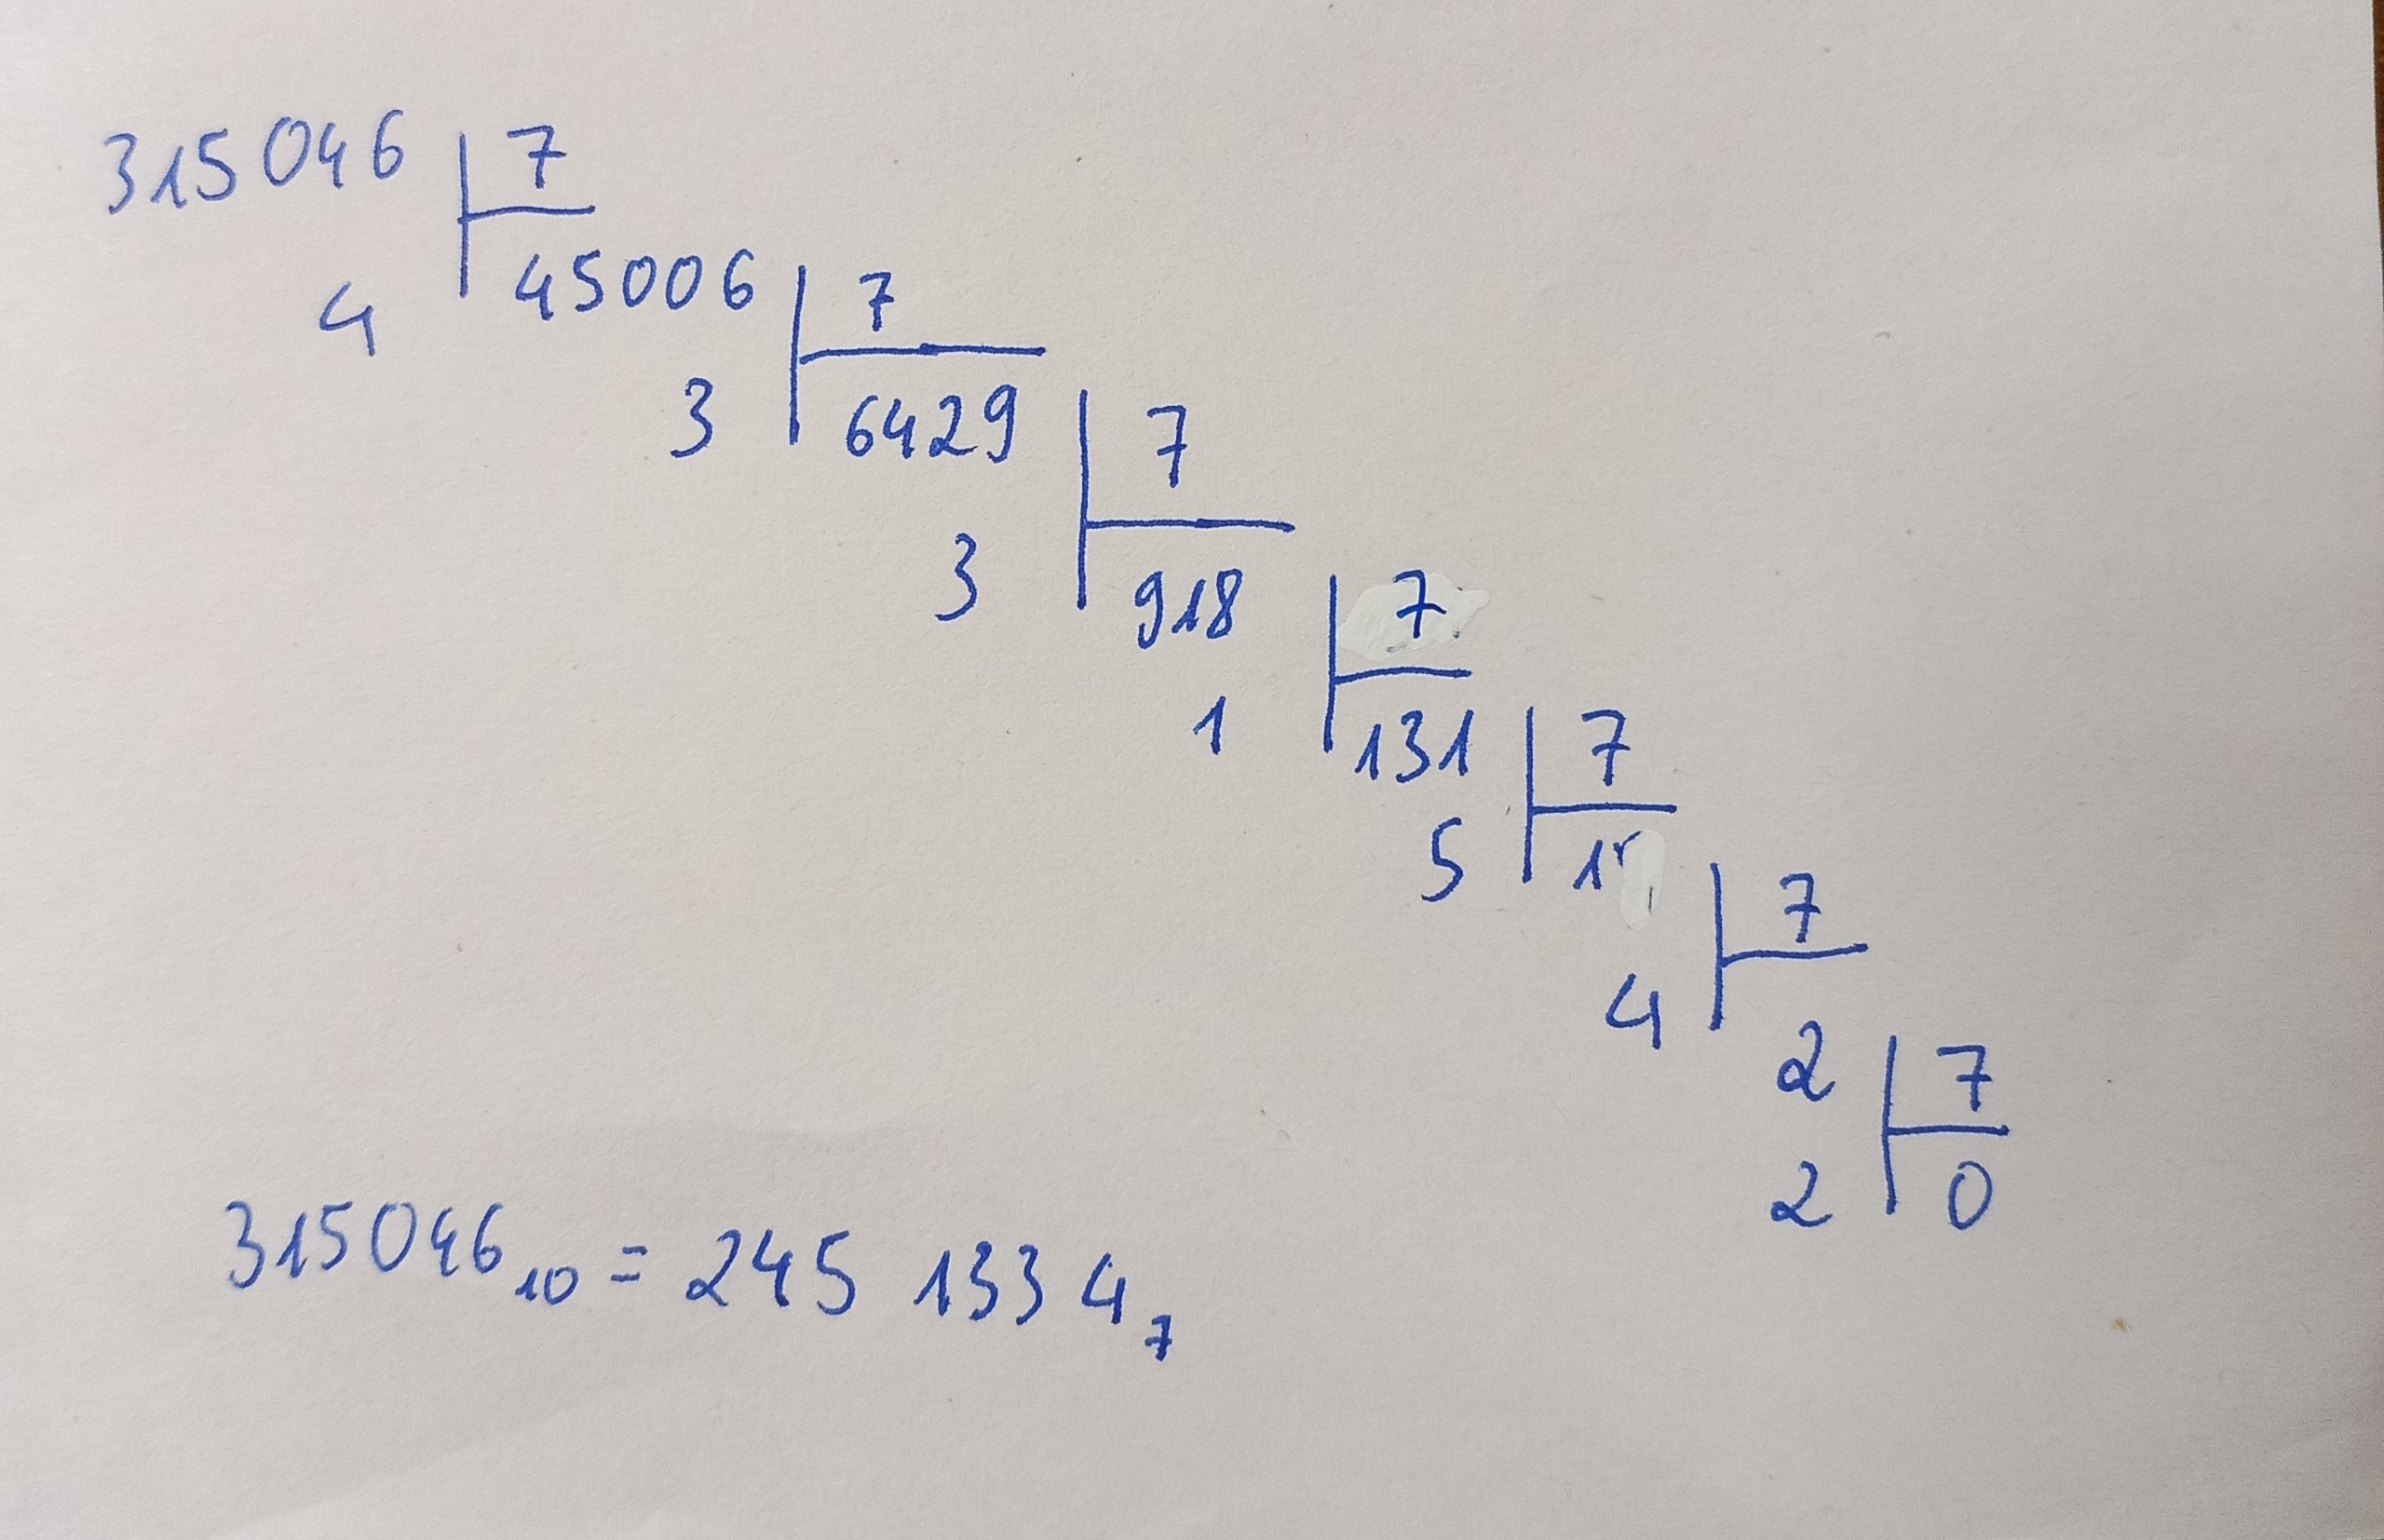 315046 7
4 45006 7
3 6429 7
3 918 7
1 131 7
5 7
4 2 7
2 0
315046₁₀ = 245 133 4₇